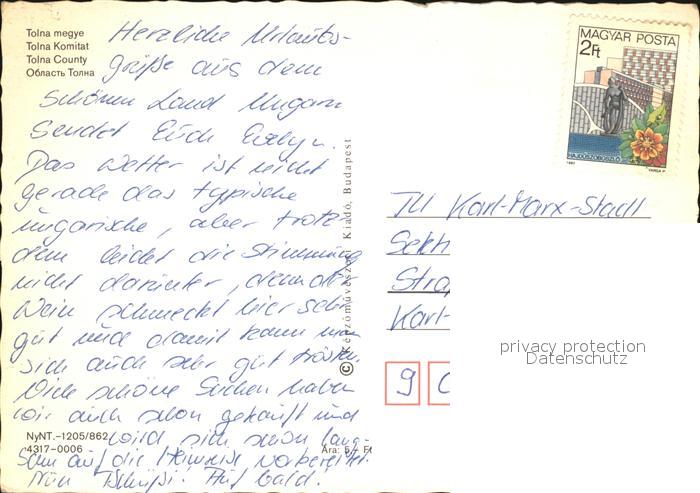 Tolna megye
Tolna Komitat
Tolna County
Область Толна
Herzliche Urlaubs-
grüße aus dem
schönen Land Ungarn
sendet Euch Evelyn.
Das Wetter ist nicht
gerade das typische
ungarische, aber trotz
dem leidet die Stimmung
nicht darunter, denn der
Wein schmeckt hier sehr
gut und damit kann man
sich auch sehr gut trösten.
Viele schöne Sachen haben
wir auch schon gekauft und
wird sich schon lang-
sam auf die Heimreise vorbereitet.
Nun Tschüß! Auf bald!
NyNT.–1205/862
4317–0006
Ára: 5,– Ft
© Képzőművészeti Kiadó, Budapest
MAGYAR POSTA
2Ft
HAJDÚSZOBOSZLÓ
1983
VARGA P.
TU Karl-Marx-Stadt
Sekt
Stra
Karl-
9
privacy protection
Datenschutz